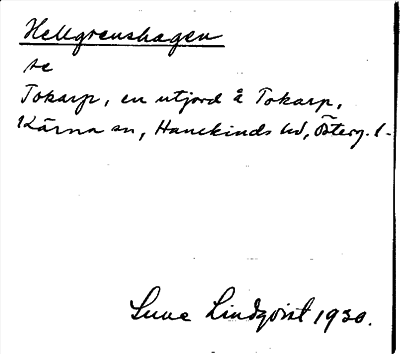 Hellgrenshagen
se
Tokarp, en utjord å Tokarp,
Kärna sn, Hanekinds hd, Österg. l.
Sune Lindqvist 1930.